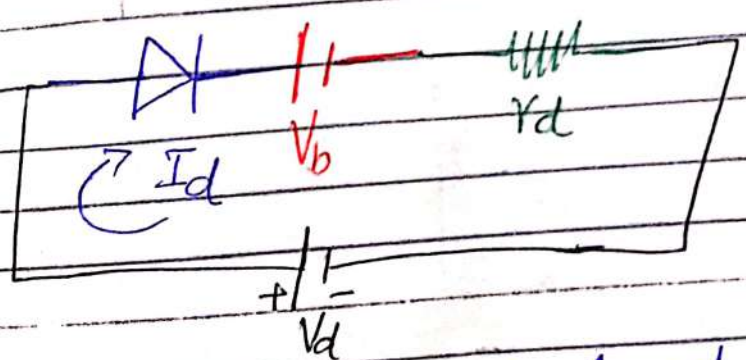 Vb
rd
Id
+ -
Vd